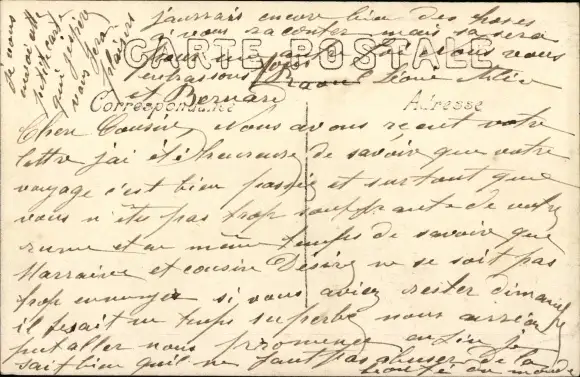 CARTE POSTALE
Correspondance
Adresse
Chers Cousins, Nous avons reçut votre
lettre j'ai été heureuse de savoir que votre
voyage c'est bien passée et surtout que
vous n'êtes pas trop souffrante de votre
rume et en même temps de savoir que
Marraine et cousin Désiré ne se soit pas
trop ennuyer si vous aviez rester dimanche
il fesait un temps superbe nous aurions
put aller nous promener enfin je
sait bien qu'il ne faut pas abuser de la
bonté du monde
j'aurrais encore bien des choses
à vous raconter mais sa sera
pour une autre fois nous vous
embrassons Raoul
et Bernard
Je vous
envoi cette
petite carte
qui j'espère
vous fera
plaisir